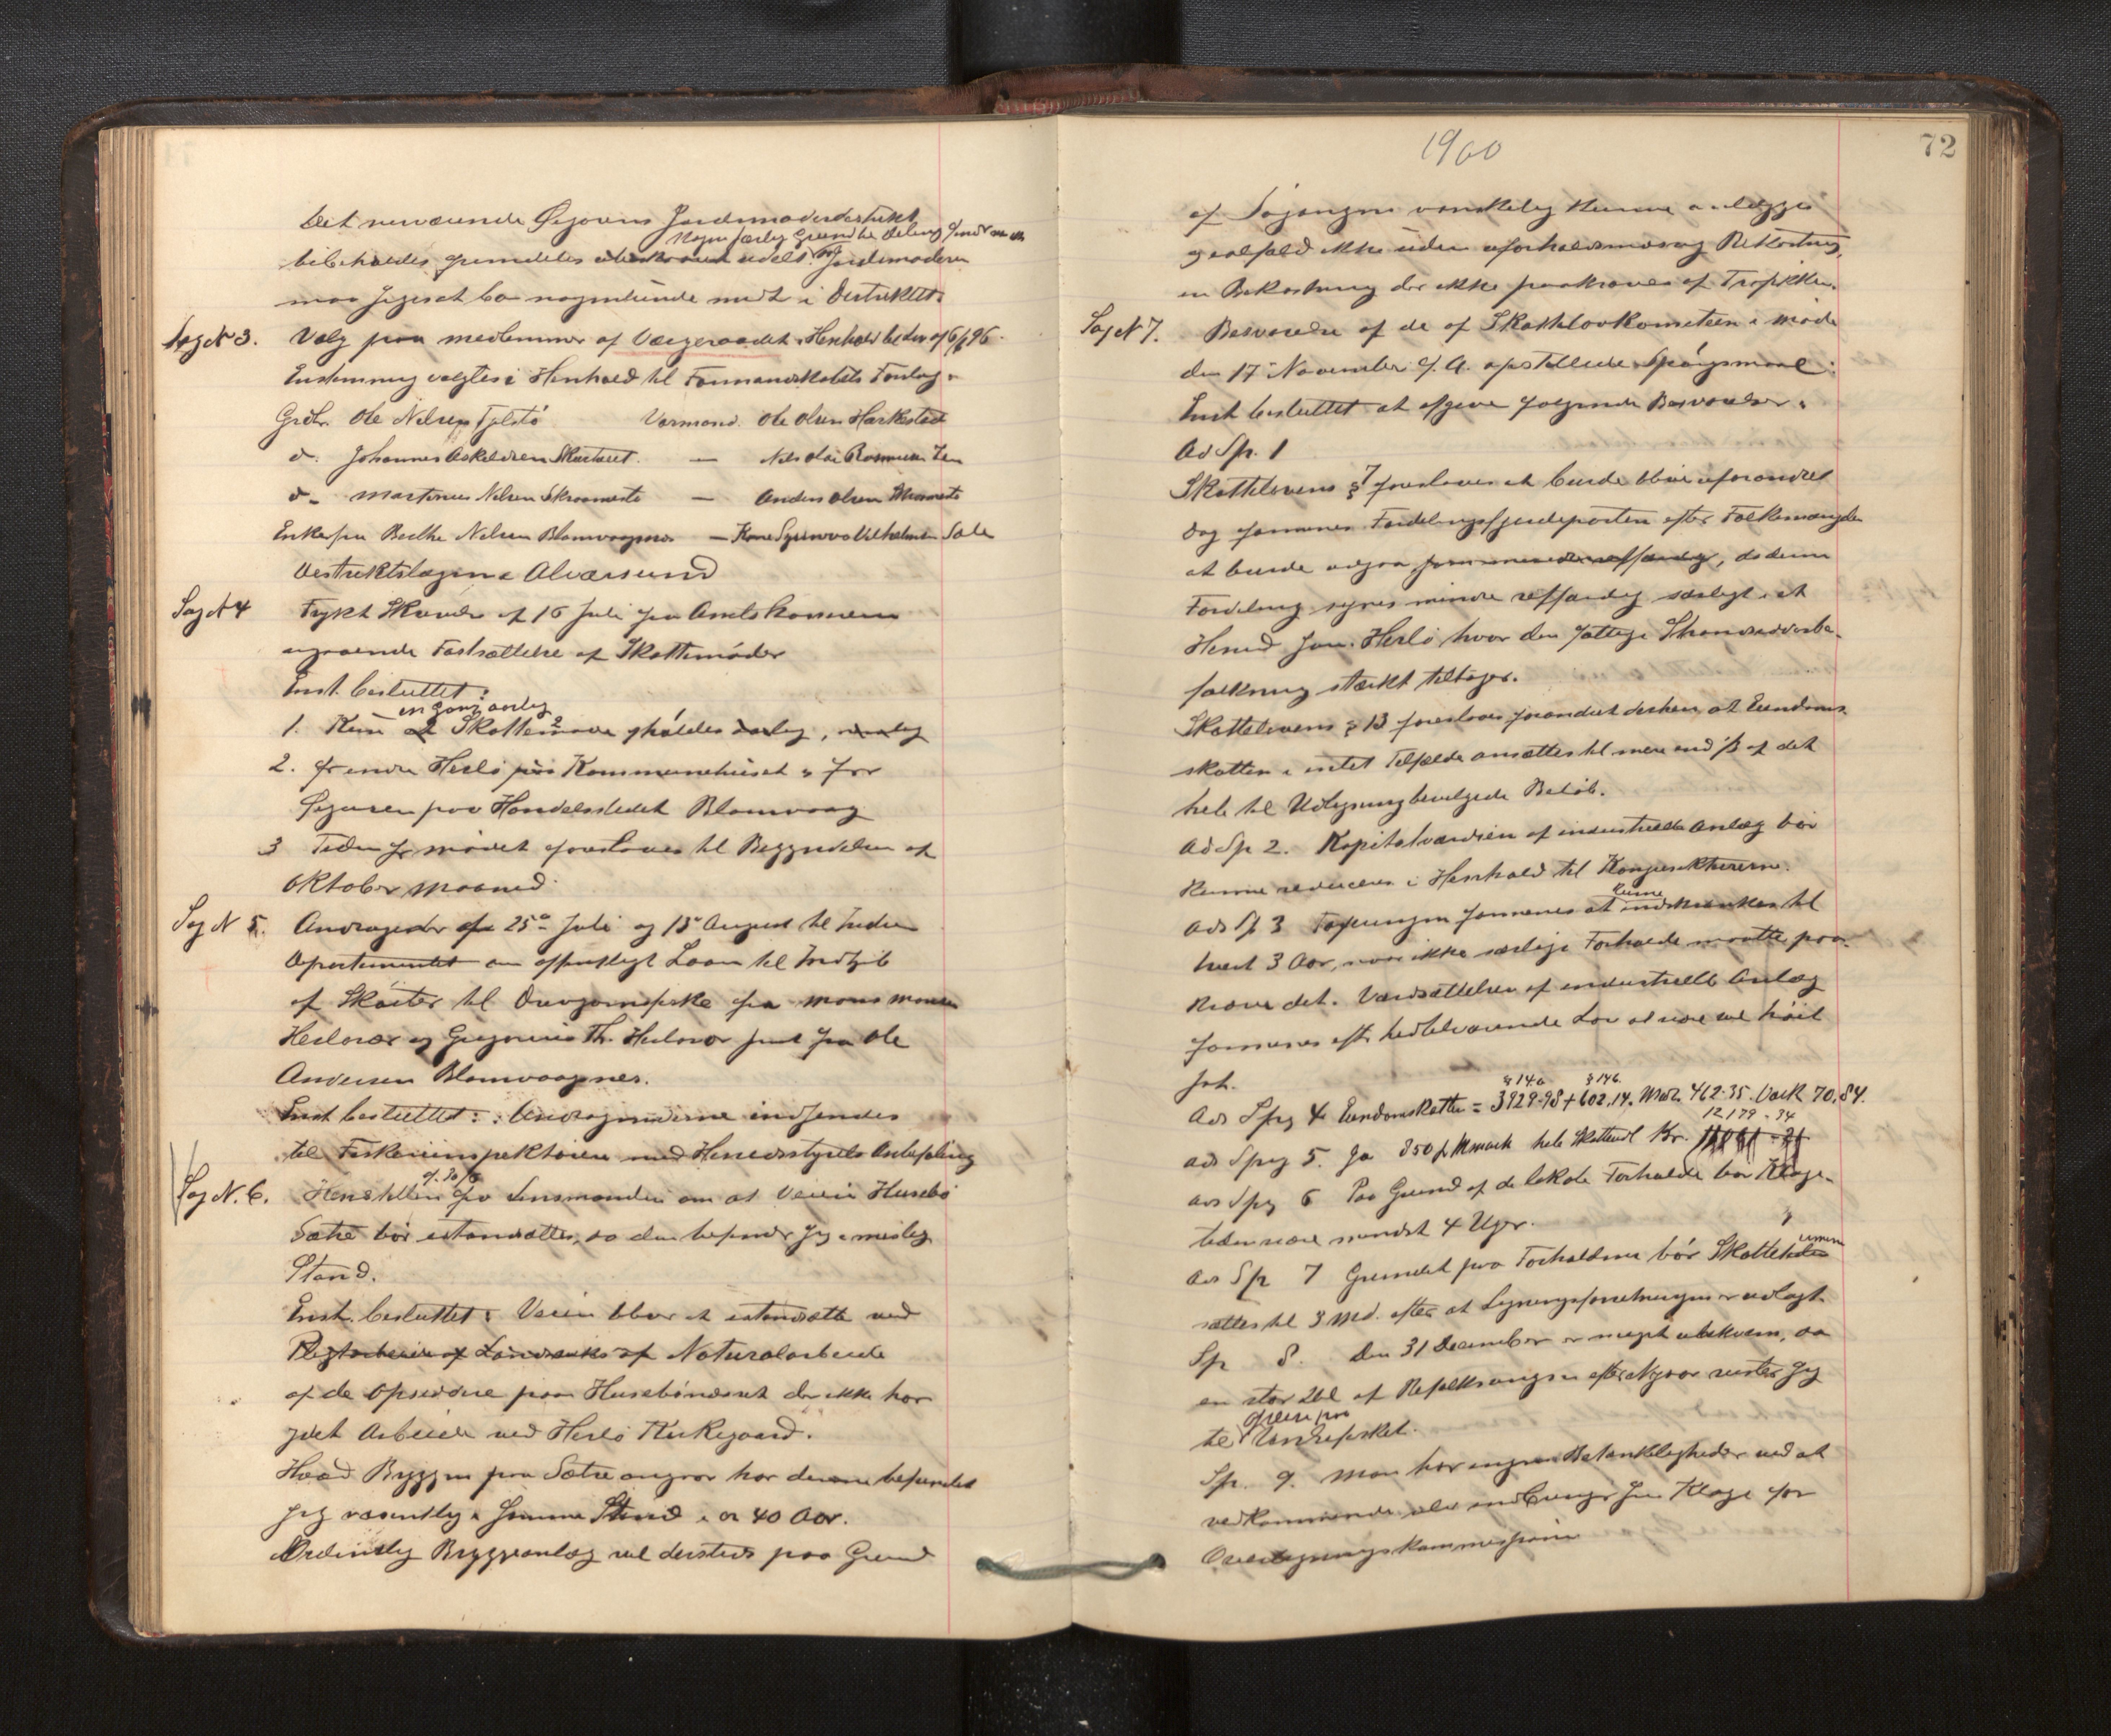 Det nuværende Øygarens Jordmoderdistrikt
Nogen særlig Grund til Deling findes ikke
bibeholdes fremdeles udelt. Jordmoderen
maa søges at bo nogenlunde midt i Distriktet.
Sag N 3. Valg paa medlemmer af Værgeraadet i Henhold til Lov af 6/6 96.
Enstemmig valgtes i Henhold til Formandskabets Forslag.
Grdbr. Ole Nilsen Fjelstø Varmand. Ole Olsen Harkestad
d. Johannes Askildsen Skurtveit. — Nikolai Rasmussen Ten
d. Martinus Nilsen Skraamestø — Anders Olsen
Enkefru Berthe Nilsen Blomvaagnes — Kone Synneva Vilhelmsen Sæle
Distriktslægen i Alversund
Sag N 4 Trykt Skrivelse af 16 Juli fra Amtskommunen
angaaende Fastsættelse af Skattemøder
Enst. besluttet:
en gang aarlig
1. Kun et Skattemøde holdes aarlig, nemlig
2. for indre Herlø paa Kommunehuset & for
Øygaren paa Handelsstedet Blomvaag
3 Tiden for mødet foreslaaes til Begyndelsen af
Oktober Maaned
Sag N 5. Andragender af 25de Juli og 15de August til Indre
Departementet om offentligt Laan til Indkjøb
af Skøiter til Drivgarnsfiske fra Mons Monsen
Herlevær og Gregorius Th. Herlevær samt fra Ole
Andersen Blomvaagnes.
Enst besluttet: Andragenderne indsendes
til Fiskeriinspektøren med Herredsstyrets Anbefaling
Sag N. 6. Henstillen af 30/6 fra Lensmanden om at Veien Husebø
Sætre bør istandsættes, da den befinder sig i mislig
Stand.
Enst. besluttet: Veien bliver at istandsætte ved
Pligtarbeide af Naturalarbeide
af de Opsiddere paa Husebønæsset der ikke har
ydet Arbeide ved Herlø Kirkegaard.
Hvad Bryggen paa Sætre angaar har denne befundet
sig væsentlig i samme Stand i ca 40 Aar.
Ordentlig Bryggeanlæg vil dersteds paa Grund
1900
72
af Søgangen vanskelig kunne anlægges
og ialfald ikke uden uforholdsmæssig Bekostning,
en Bekostning der ikke paakræves af Trafikken.
Sag N 7. Besvarelse af de af Skattelovkomiteen i møde
den 17 November f. A. opstillede Spørgsmaal:
Enst besluttet at afgive følgende Besvarelser.
Ad Sp. 1
Skattelovens § 7 foreslaaes at burde blive uforandret
Dog formenes Fordelingsfjerdeparten efter Folkemængden
at burde udgaa, da denne
Fordeling synes mindre retfærdig særligt i et
Herred som Herlø hvor den fattige Strandsidderbe-
folkning stærkt tiltager.
Skattelovens § 13 foreslaaes forandret derhen at Eiendoms-
skatten i intet Tilfælde ansættes til mere end 1/3 af det
hele til Udligning bevilgede Beløb.
Ad Sp 2. Kapitalværdien af industrielle Anlæg bør
kunne reduceres i Henhold til Konjunkturerne.
Ad Sp 3 Taxeringen formenes at kunne indskrænkes til
hvert 3 Aar, naar ikke særlige Forholde maatte paa-
kræve det. Værdsættelsen af industrielle Anlæg
formenes efter hidtilværende Lov at være vel høit
sat.
§ 14a § 14b.
Ad Spg 4 Eiendomsskatten = 3929-98 + 602.14. Mdr. 462-35. Vask 70.84.
12179-34
Ad Spg 5. Ja 850 hele Skatteudl Kr.
Ad Spg 6 Paa Grund af de lokale Forholde bør Klage-
tiden være mindst 4 Uger.
Ad Sp 7 Grundet paa Forholdene bør Skatteterminen
sættes til 3 Md. efter at Ligningsforretningen er udlagt.
Sp 8. Den 31 December er meget ubekvem, da
en stor Del af Befolkningen efter Nytaar ruster sig
til Vaarsildfisket.
Sp. 9. Man har ingen Betænkeligheder ved at
vedkommende selv indbringer sin Klage for
Overligningskommissionen